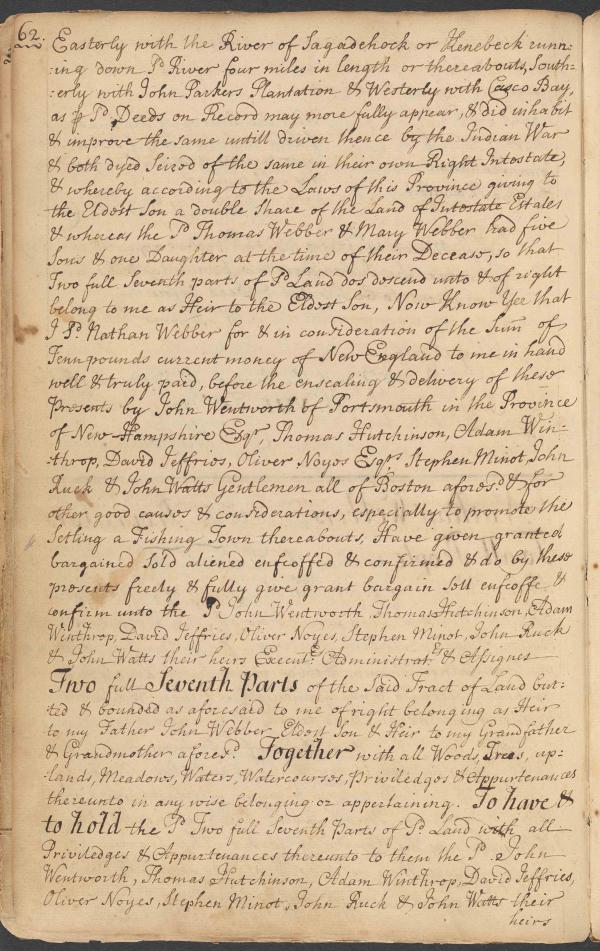 62.
Easterly with the River of Sagadehock or Kenebeck runn:
:ing down Sd River four miles in length or thereabouts, South:
:erly with John Parkers Plantation & Westerly with Casco Bay,
as p Sd Deeds on Record may more fully appear, & did inhabit
& improve the same untill driven thence by the Indian War
& both dyed Seized of the same in their own Right Intestate,
& whereby according to the Laws of this Province giving to
the Eldest Son a double Share of the Land of Intestate Estates
& whereas the Sd Thomas Webber & Mary Webber had five
Sons & one Daughter at the time of their Decease, so that
Two full Seventh parts of Sd Land dos descend unto & of right
belong to me as Heir to the Eldest Son, Now Know Yee that
I Sd Nathan Webber for & in consideration of the Sum of
Tenn pounds current money of New England to me in hand
well & truly paid, before the ensealing & delivery of these
Presents by John Wentworth of Portsmouth in the Province
of New-Hampshire Esqr, Thomas Hutchinson, Adam Win-
-throp, David Jeffries, Oliver Noyes Esqrs Stephen Minot, John
Ruck & John Watts Gentlemen all of Boston aforesd & for
other good causes & considerations, especially to promote the
Setling a Fishing Town thereabouts, Have given granted
bargained Sold aliened enfeoffed & confirmed & do by these
presents freely & fully give grant bargain sell enfeoffe &
confirm unto the Sd John Wentworth, Thomas Hutchinson, Adam
Winthrop, David Jeffries, Oliver Noyes, Stephen Minot, John Ruck
& John Watts their heirs Executrs Administratrs & Assignes
Two full Seventh Parts of the Said Tract of Land but:
ted & bounded as aforesaid to me of right belonging as Heir
to my Father John Webber Eldest Son & Heir to my Grandfather
& Grandmother aforesd. Together with all Woods, Trees, up=
-lands, Meadows, Waters, Watercourses, Priviledges & Appurtenances
thereunto in any wise belonging or appertaining. To have &
to hold the Sd Two full Seventh Parts of Sd Land with all
Priviledges & Appurtenances thereunto to them the Sd John
Wentworth, Thomas Hutchinson, Adam Winthrop, David Jeffries,
Oliver Noyes, Stephen Minot, John Ruck & John Watts their
heirs